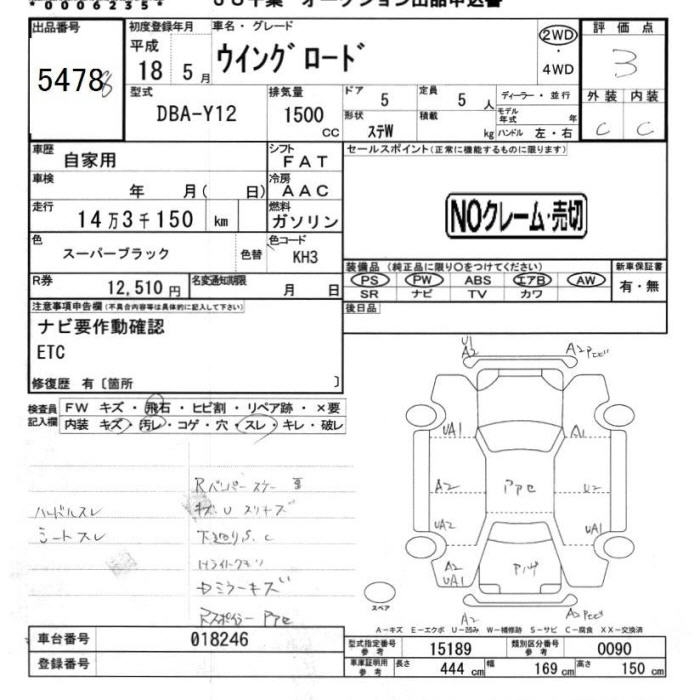 *00006235*
オークション出品申込書
出品番号 初度登録年月 車名・グレード 評価点
54788 平成 18 5月 ウイングロード 2WD ・ 4WD 3
型式 排気量 ドア 定員 ディーラー・並行 外装 内装
DBA-Y12 1500 CC 5 5 人 モデル年式 年 C C
形状 積載
ステW kg ハンドル 左・右
車歴 自家用 シフト FAT セールスポイント(正常に機能するものに限ります)
車検 年 月( 日) 冷房 AAC
走行 14万3千150 km 燃料 ガソリン NOクレーム・売切
色 スーパーブラック 色替 色コード KH3
装備品(純正品に限り○をつけてください) 新車保証書
R券 12,510円 名変通知期限 月 日 PS PW ABS エアB AW 有・無
SR ナビ TV カワ
注意事項申告欄(不具合内容等は具体的に記入して下さい) 後日品
ナビ要作動確認
ETC
修復歴 有〔箇所 〕
検査員記入欄 FW キズ・飛石・ヒビ割・リペア跡・×要
内装 キズ・汚レ・コゲ・穴・スレ・キレ・破レ
U1
A2 A2
UA1 A1
A2 U2
UA2 UA1
A2
UA1
A2
Rバンパースケー
ハンドルスレ キズU スリキズ
シートスレ 下廻りS.C
Hライトキズ
Dミラーキズ
スペア
A－キズ E－エクボ U－凹み W－補修跡 S－サビ C－腐食 XX－交換済
車台番号 018246 型式指定番号 参考 15189 類別区分番号 参考 0090
登録番号 車庫証明用 参考 長さ 444 cm 幅 169 cm 高さ 150 cm